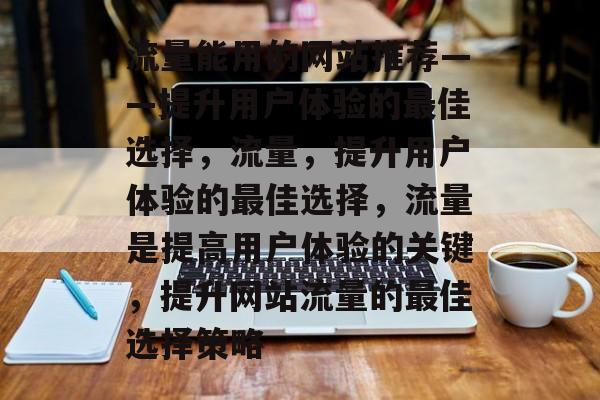 流量能用的网站推荐—
—提升用户体验的最佳
选择，流量，提升用户
体验的最佳选择，流量
是提高用户体验的关键
，提升网站流量的最佳
选择策略